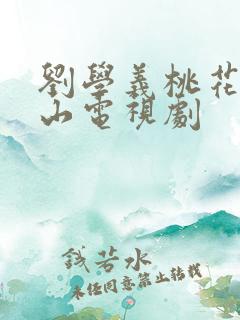 劉學義桃花
山電視劇
錢若水
未經同意禁止轉載